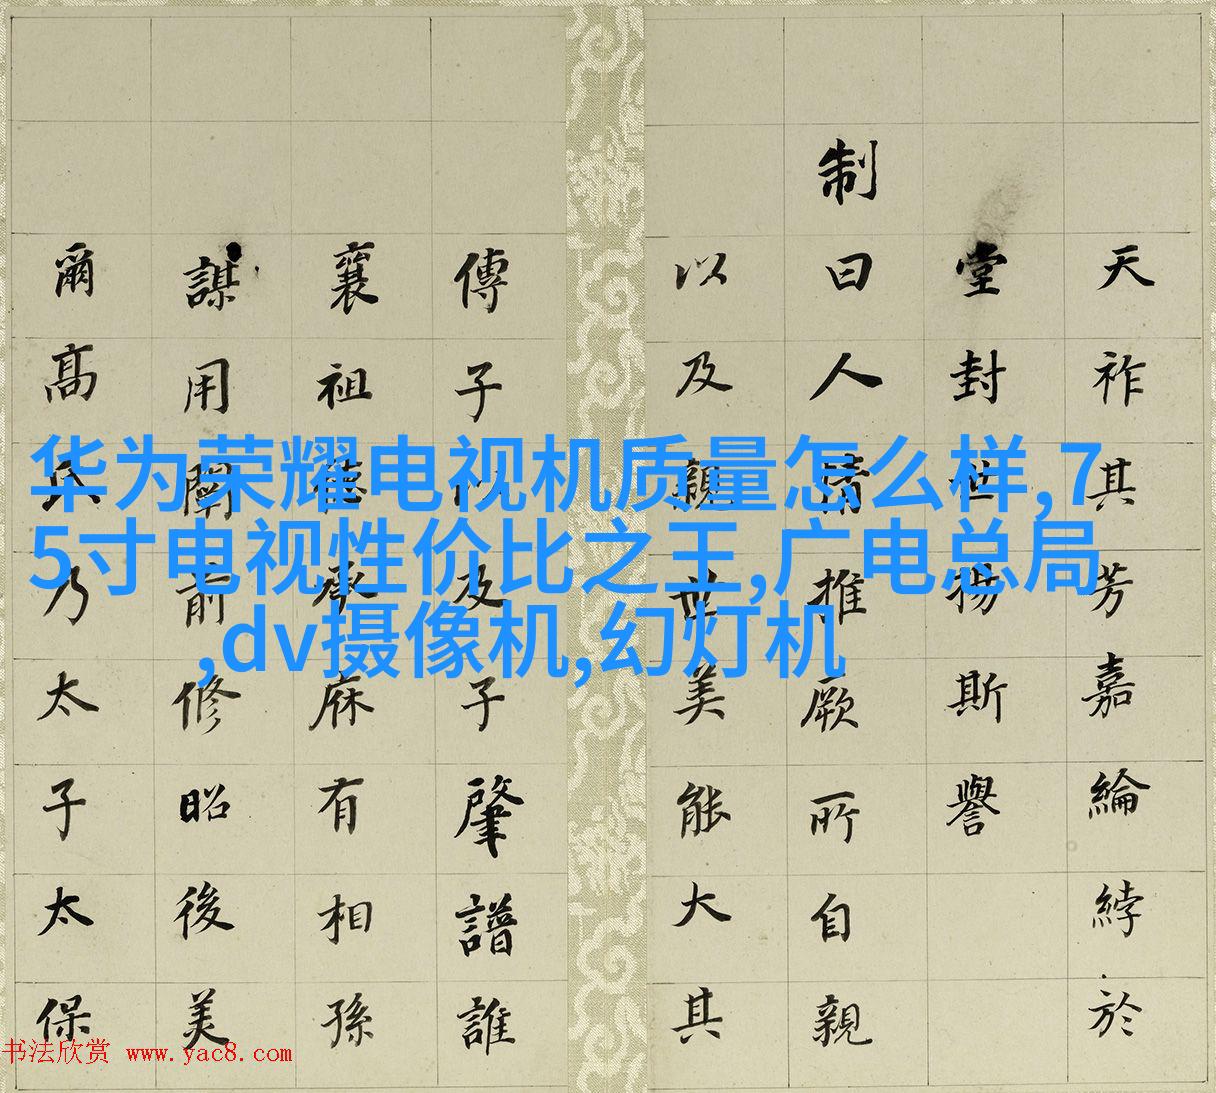 华为荣耀电视机质量怎么样,7
5寸电视性价比之王,广电总局
,dv摄像机,幻灯机
天祚其芳嘉綸綍於
堂封世揚斯譽
制曰人情推厥所自親
以及親世美能大其
傳子以及子肇譜誰
襄祖德承庥有相孫
謀用闡前修昭後美
爾高氏乃太子太保
书法欣赏 www.yac8.com